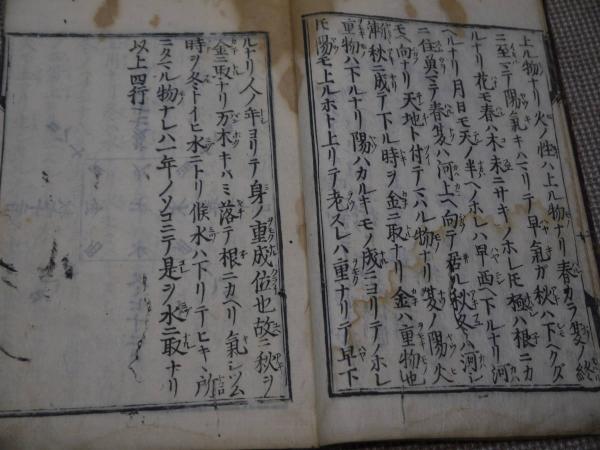 上ル物ナリ火ノ性ハ上ル物ナリ春カラ夏ノ終
ニ至マテ陽氣キハマリテ早氣ガ秋ハ下ヘクダ
ルナリ花モ春ハ木ノ末ニサキノホレ𪜈極ハ根ニカ
ヘルナリ月日モ天ノ半ヘノホレハ早西ヘ下ルナリ河
ニ住魚マテ春夏ハ河上ヘ向テ居ル秋冬ハ河シ
モヘ向ナリ天地ト付テマハル物ナリ夏ノ陽火
漸秋ニ成テ下ル時ヲ金ニ取ナリ金ハ重物也
重物ハ下ルナリ陽ハカルキモノ成ニヨリテノホレ
𪜈陽モ上ルホト上リテ老スレハ重ナリテ早下
ルナリ人ノ年ヨリテ身ノ重成位也故ニ秋ヲ
金ニ取ナリ万木キハミ落テ根ニカヘリ氣シツム
時ヲ冬トイヒ水ニトリ候水ハ下リテヒキヽ所
ニタマル物ナレハ一年ノソコニテ是ヲ水ニ取ナリ
以上四行